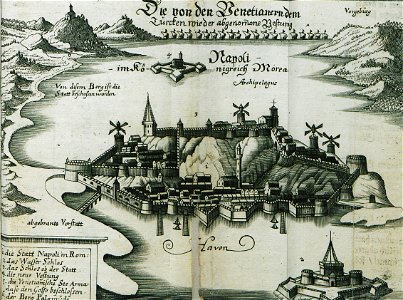 Die von den Venetianern dem
Türcken wieder abgenom̄ene Vestung
Vorgebürg
Napoli
im Kö nigreich Morea
Von disem Berg ist die
Statt beschossen worden
Archipelagus
abgebrante Vorstatt
Haven
die Statt Napoli in Rom:
das Wasser Schlos
das Schlos ob der Statt
die neue Vestung
die Venetianische See Arma
der Berg